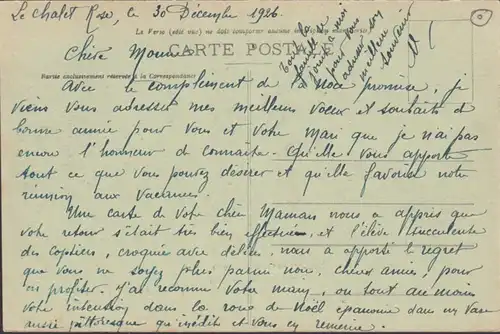 Le Chalet Rose, le 30 Décembre 1926.
La Verso (côté vue) ne doit comporter aucune
CARTE POSTALE
Partie exclusivement réservée à la Correspondance
Chère
Toute la
famille se
joint à moi
pour vous
adresser son
meilleur
souvenir
Avec le complément de la Noce promise, je
viens vous adresser mes meilleurs vœux et souhaits de
bonne année pour Vous et Votre Mari que je n'ai pas
encore l'honneur de connaître. Qu'elle vous apporte
tout ce que vous pouvez désirer et qu'elle favorise notre
réunion aux Vacances.
Une carte de Votre chère Maman nous a appris que
votre retour s'était très bien effectué, et l'élève succulente
des Coptiers, croquée avec délice, nous a apporté le regret
que vous ne soyez plus parmi nous, chers amis, pour
en profiter. J'ai reconnu Votre main, ou tout au moins
votre intention dans la rose de Noël épanouie dans un Vase
aussi pittoresque qu'inédit et vous en remercie.